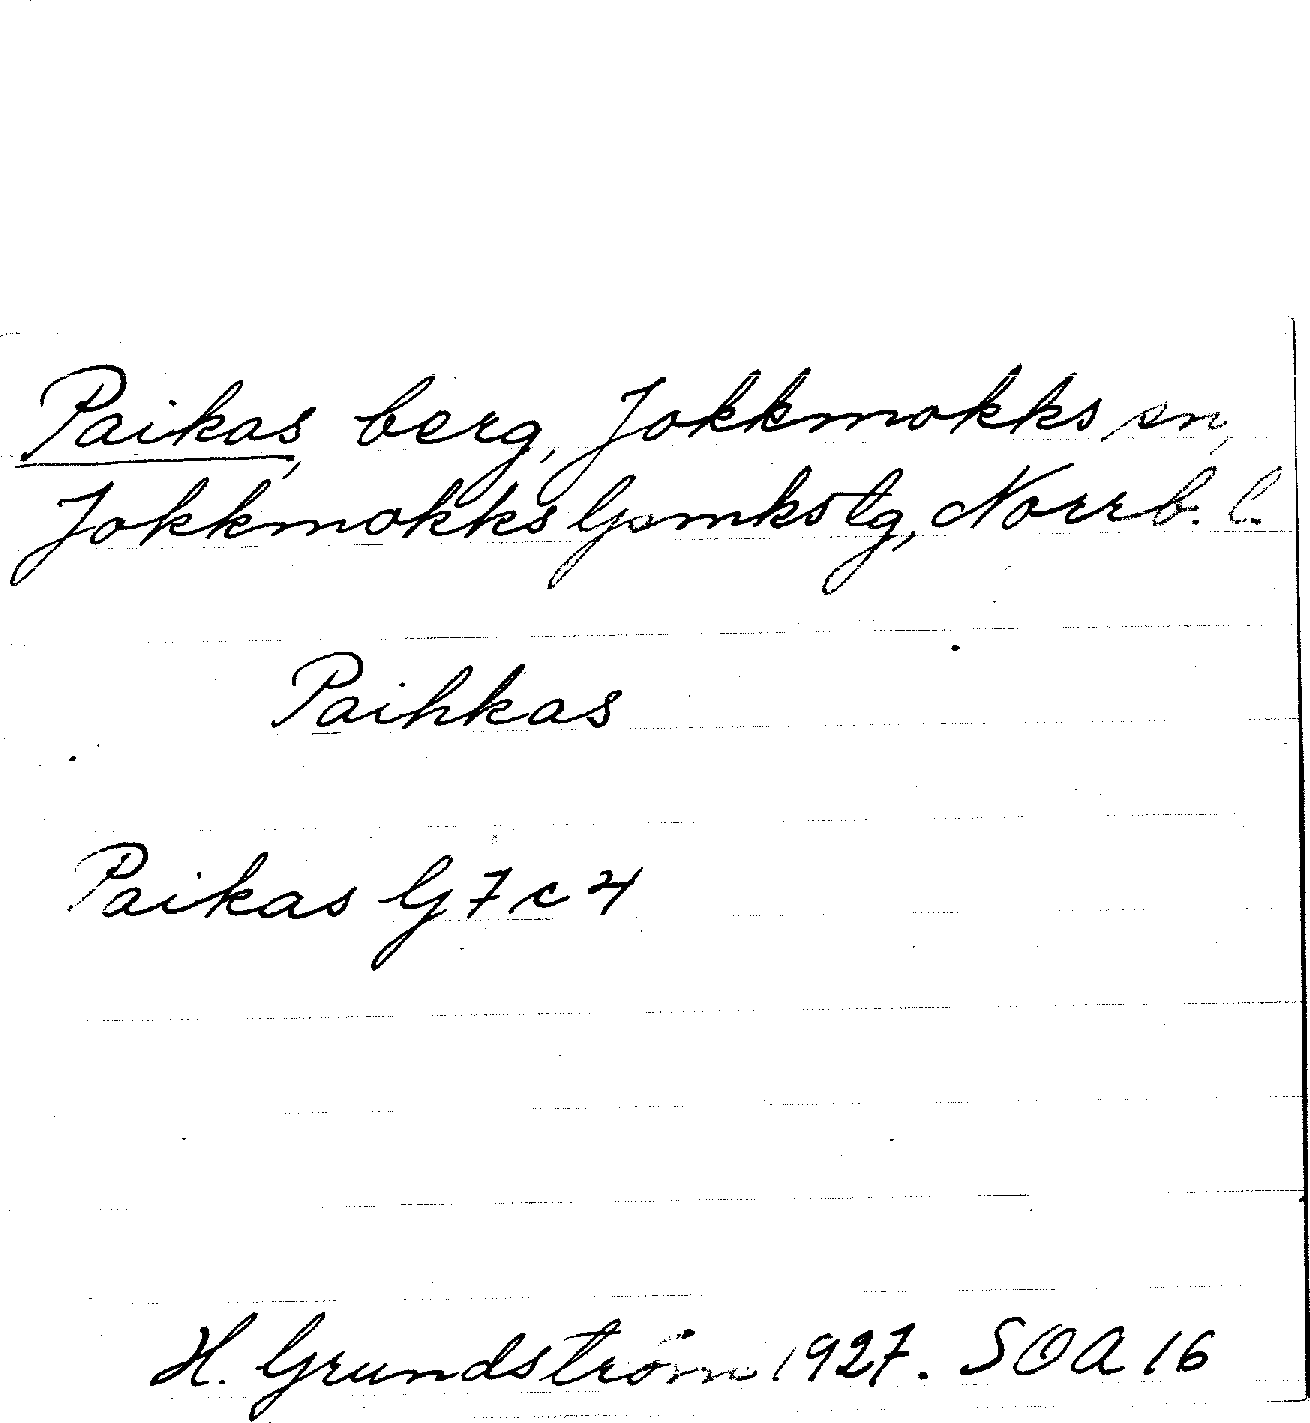 Paikas, berg, Jokkmokks sn,
Jokkmokks lpmkstg, Norrb. l.
Paihkas
Paikas G7c4
H. Grundström 1927. SOA 16